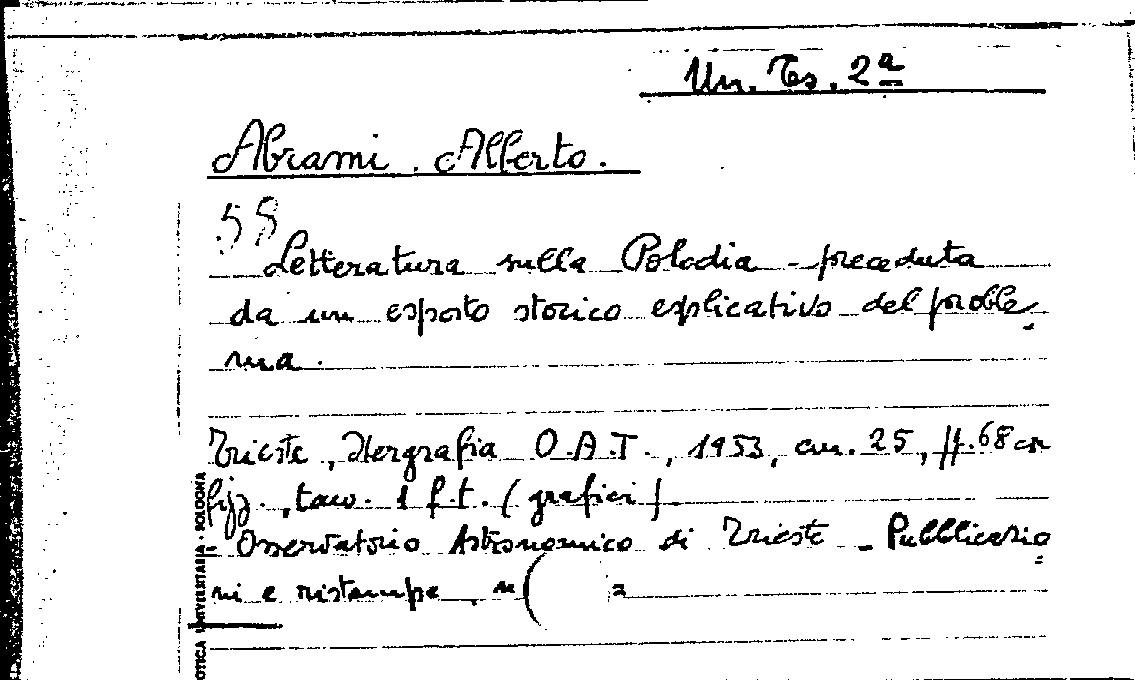 Un. Ts. 2ª
Abrami. Alberto.
58
Letteratura sulla Polodia - preceduta
da un esposto storico esplicativo del proble
ma.
Trieste, Hergrafia O.A.T., 1953, cm. 25, ff. 68 con
figg., tav. 1 f.t. (grafici)
- Osservatorio Astronomico di Trieste - Pubblicazio
ni e ristampe, n (
OTICA UNIVERSITARIA - BOLOGNA